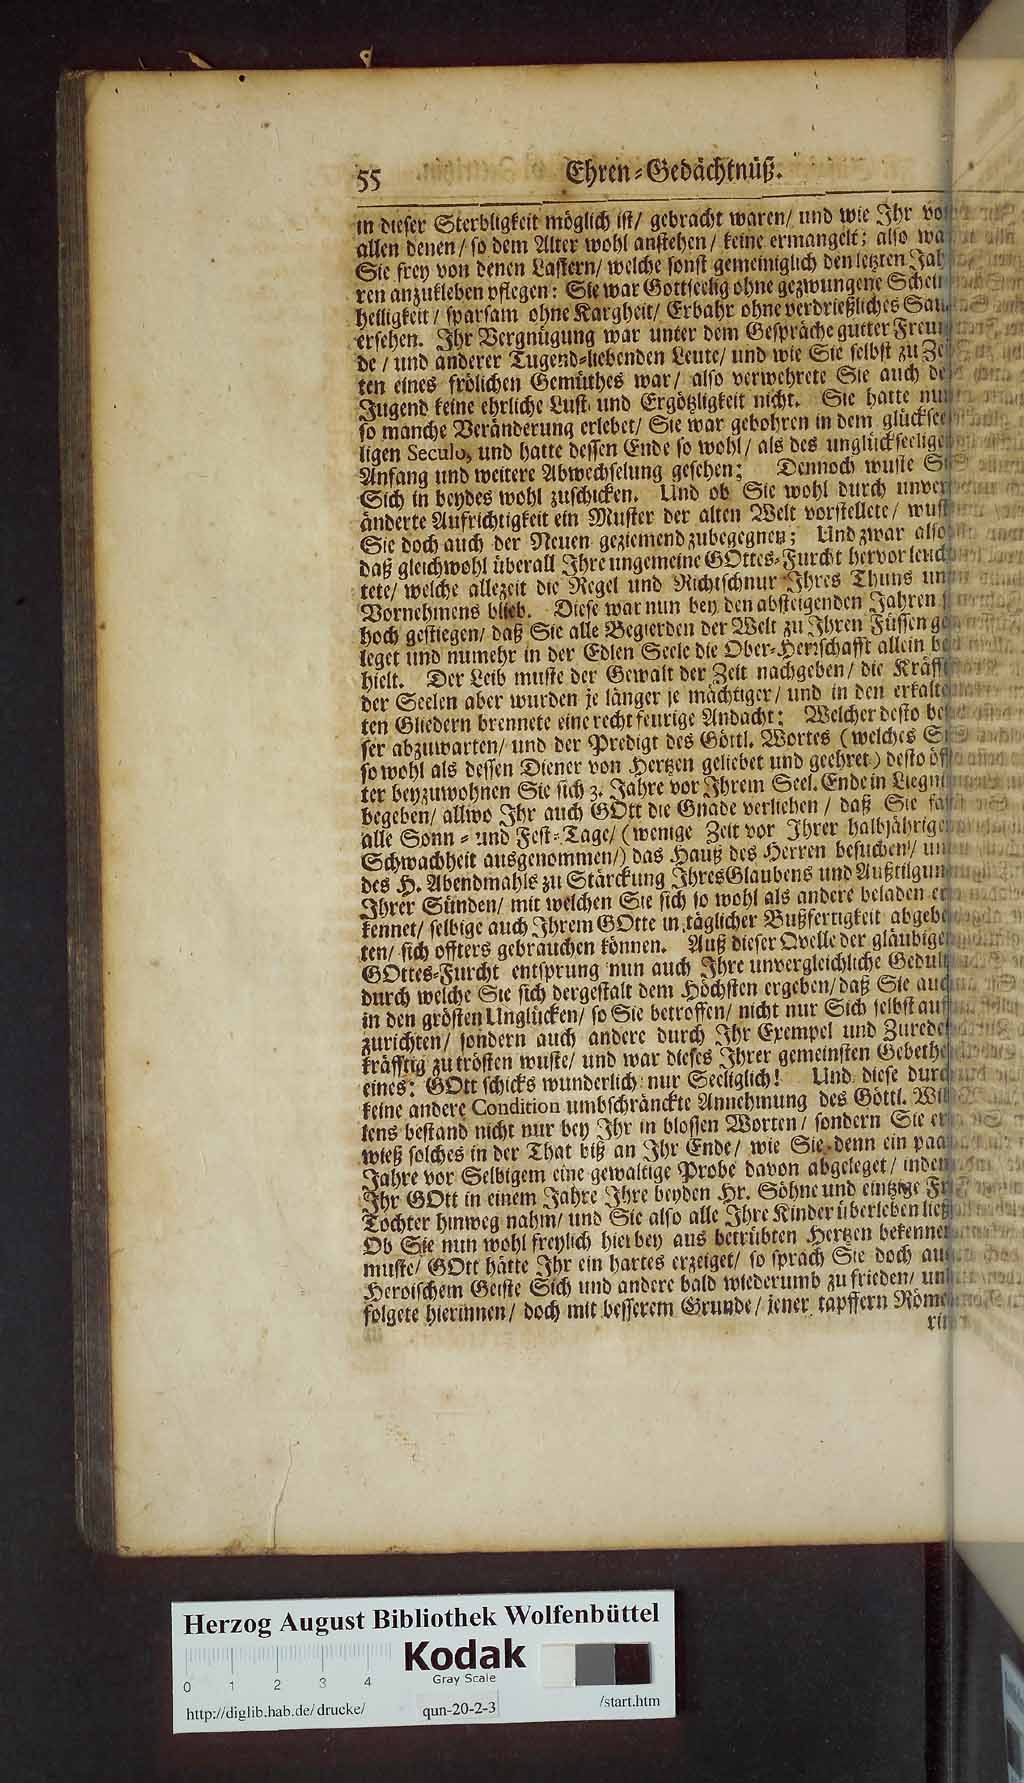 55 Ehren-Gedächtnüß.
in dieser Sterbligkeit möglich ist/ gebracht waren/ und wie Ihr vo
allen denen/ so dem Alter wohl anstehen/ keine ermangelt; also wa
Sie frey von denen Lastern/ welche sonst gemeiniglich den letzten Jah
ren anzukleben pflegen: Sie war Gottseelig ohne gezwungene Schein
heiligkeit/ sparsam ohne Kargheit/ Erbahr ohne verdrießliches Sau
ersehen. Ihr Vergnügung war unter dem Gespräche gutter Freun
de/ und anderer Tugend-liebenden Leute/ und wie Sie selbst zu Zei
ten eines frölichen Gemüthes war/ also verwehrete Sie auch de
Jugend keine ehrliche Lust und Ergötzligkeit nicht. Sie hatte nun
so manche Veränderung erlebet/ Sie war gebohren in dem glücksee
ligen Seculo, und hatte dessen Ende so wohl/ als des unglückseelige
Anfang und weitere Abwechselung gesehen; Dennoch wuste Si
Sich in beydes wohl zuschicken. Und ob Sie wohl durch unver
änderte Aufrichtigkeit ein Muster der alten Welt vorstellete/ wust
Sie doch auch der Neuen geziemend zubegegnen; Und zwar also
daß gleichwohl überall Ihre ungemeine GOttes-Furcht hervor leuch
tete/ welche allezeit die Regel und Richtschnur Ihres Thuns un
Vornehmens blieb. Diese war nun bey den absteigenden Jahren s
hoch gestiegen/ daß Sie alle Begierden der Welt zu Ihren Füssen ge
leget und numehr in der Edlen Seele die Ober-Herrschafft allein be
hielt. Der Leib muste der Gewalt der Zeit nachgeben/ die Kräff
der Seelen aber wurden je länger je mächtiger/ und in den erkalte
ten Gliedern brennete eine recht feurige Andacht: Welcher desto bes
ser abzuwarten/ und der Predigt des Göttl. Wortes (welches Si
so wohl als dessen Diener von Hertzen geliebet und geehret) desto öff
ter beyzuwohnen Sie sich 3. Jahre vor Ihrem Seel. Ende in Liegni
begeben/ allwo Ihr auch GOtt die Gnade verliehen/ daß Sie fast
alle Sonn- und Fest-Tage/ (wenige Zeit vor Ihrer halbjährige
Schwachheit ausgenommen/) das Hauß des Herren besuchen/ un
des H. Abendmahls zu Stärckung Ihres Glaubens und Außtilgun
Ihrer Sünden/ mit welchen Sie sich so wohl als andere beladen er
kennet/ selbige auch Ihrem GOtte in täglicher Bußfertigkeit abgebe
ten/ sich offters gebrauchen können. Auß dieser Qvelle der gläubige
GOttes-Furcht entsprung nun auch Ihre unvergleichliche Gedult
durch welche Sie sich dergestalt dem Höchsten ergeben/ daß Sie auch
in den grösten Unglücken/ so Sie betroffen/ nicht nur Sich selbst auf
zurichten/ sondern auch andere durch Ihr Exempel und Zurede
kräfftig zu trösten wuste/ und war dieses Ihrer gemeinsten Gebethe
eines: GOtt schicks wunderlich nur Seeliglich! Und diese durch
keine andere Condition umbschränckte Annehmung des Göttl. Wil
lens bestand nicht nur bey Ihr in blossen Worten/ sondern Sie er
wieß solches in der That biß an Ihr Ende/ wie Sie denn ein paa
Jahre vor Selbigem eine gewaltige Probe davon abgeleget/ indem
Ihr GOtt in einem Jahre Ihre beyden Hr. Söhne und eintzige Fr
Tochter hinweg nahm/ und Sie also alle Ihre Kinder überleben ließ
Ob Sie nun wohl freylich hierbey aus betrübten Hertzen bekennen
muste/ GOtt hätte Ihr ein hartes erzeiget/ so sprach Sie doch au
Heroischem Geiste Sich und andere bald wiederumb zu frieden/ un
folgete hierinnen/ doch mit besserem Grunde/ jener tapffern Röme
rin
Herzog August Bibliothek Wolfenbüttel
Kodak
Gray Scale
0 1 2 3 4
http://diglib.hab.de/drucke/ qun-20-2-3 /start.htm